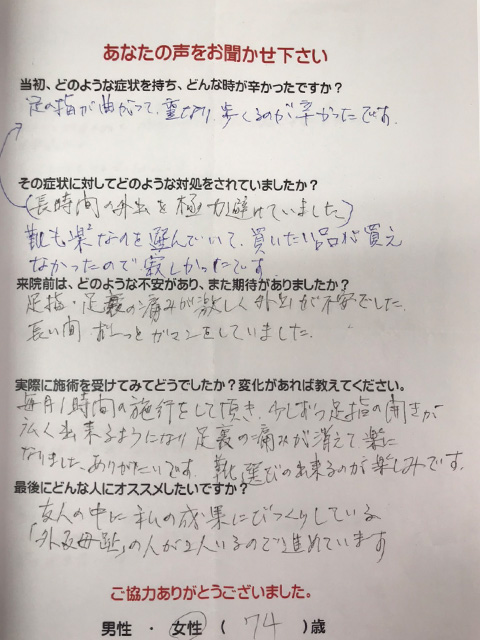 あなたの声をお聞かせ下さい
当初、どのような症状を持ち、どんな時が辛かったですか？
足の指が曲がって、重なり、歩くのが辛かったです。
その症状に対してどのような対処をされていましたか？
(長時間の外出を極力避けていました)
靴も楽なのを選んでいて、買いたい品が買え
なかったので寂しかったです
来院前は、どのような不安があり、また期待がありましたか？
足指・足裏の痛みが激しく外出が不安でした。
長い間 ずーっとガマンをしていました。
実際に施術を受けてみてどうでしたか？変化があれば教えてください。
毎月1時間の施行をして頂き、少しずつ足指の開きが
広く出来るようになり足裏の痛みが消えて楽に
なりました。ありがたいです。靴選びの出来るのが楽しみです。
最後にどんな人にオススメしたいですか？
友人の中に私の成果にびっくりしている
「外反母趾」の人が2人いるので進めています
ご協力ありがとうございました。
男性 ・ 女性 ( 74 ) 歳